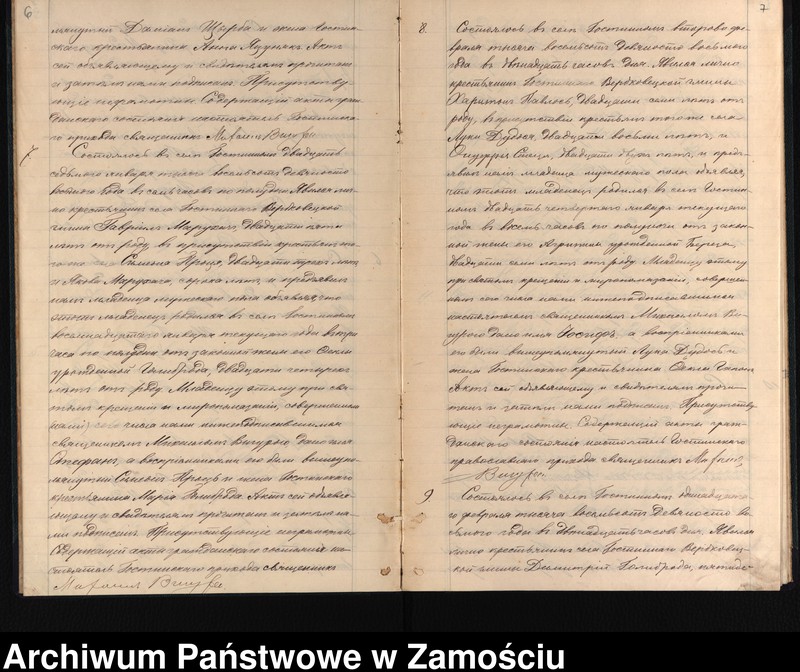 6
мянутый Даміанъ Щерба и жена Гостин-
скаго крестьянина Анна Актъ
сей объявляющему и свидѣтелямъ прочитанъ
и затѣмъ нами подписанъ. Присутству-
ющіе неграмотны. Содержащій акты граж-
данскаго состоянія настоятель Гостинска-
го прихода священникъ Михаилъ
7. Состоялось въ селѣ Гостинномъ двадцать
седьмого января тысяча восемьсотъ девяносто
восьмого года въ семь часовъ по полудни. Явился лич-
но крестьянинъ села Гостинного Вербковицкой
гмины Гавріилъ двадцати пяти
лѣтъ отъ роду, въ присутствіи крестьянъ то-
го же села Симеона Процъ, двадцати трехъ лѣтъ
и Якова сорока лѣтъ, и предъявилъ
намъ младенца мужескаго пола объявляя, что
этотъ младенецъ родился въ селѣ Гостинномъ
восемнадцатого января текущаго года въ три
часа по полудни отъ законной жены его Ѳеклы
урожденной двадцати четырехъ
лѣтъ отъ роду. Младенцу этому при свя-
томъ крещеніи и миропомазаніи, совершенномъ
сего числа нами нижеподписавшимся
священникомъ Михаиломъ дано имя
Стефанъ, а воспріемниками его были вышеупо-
мянутый Симеонъ Процъ и жена Гостинского
крестьянина Марія Актъ сей объявля-
ющему и свидѣтелямъ прочитанъ и затѣмъ на-
ми подписанъ. Присутствующіе неграмотны.
Содержащій акты гражданскаго состоянія на-
стоятель Гостинского прихода священникъ
Михаилъ
7
8. Состоялось въ селѣ Гостинномъ второго фе-
враля тысяча восемьсотъ девяносто восьмого
года въ двѣнадцать часовъ дня. Явился лично
крестьянинъ Гостинного Вербковицкой гмины
Харитонъ Павлосъ, двадцати семи лѣтъ отъ
роду, въ присутствіи крестьянъ того же села
Луки Дудося, двадцати восьми лѣтъ, и
Онуфрія двадцати двухъ лѣтъ, и предъ-
явилъ намъ младенца мужескаго пола объявляя,
что этотъ младенецъ родился въ селѣ Гостин-
номъ двадцать четвертого января текущаго
года въ восемь часовъ по полудни отъ закон-
ной жены его урожденной
двадцати семи лѣтъ отъ роду. Младенцу этому
при святомъ крещеніи и миропомазаніи, совершен-
номъ сего числа нами нижеподписавшимся
настоятелемъ священникомъ Михаиломъ
дано имя Іосифъ, а воспріемниками
его были вышеупомянутый Лука Дудосъ и
жена Гостинского крестьянина Ѳекла
Актъ сей объявляющему и свидѣтелямъ прочи-
танъ и затѣмъ нами подписанъ. Присутству-
ющіе неграмотны. Содержащій акты граж-
данскаго состоянія настоятель Гостинского
православного прихода священникъ Михаилъ
9. Состоялось въ селѣ Гостинномъ
го февраля тысяча восемьсотъ девяносто во-
сьмого года въ двѣнадцать часовъ дня. Явился
лично крестьянинъ села Гостинного Вербковиц-
кой гмины Димитрій
Archiwum Państwowe w Zamościu